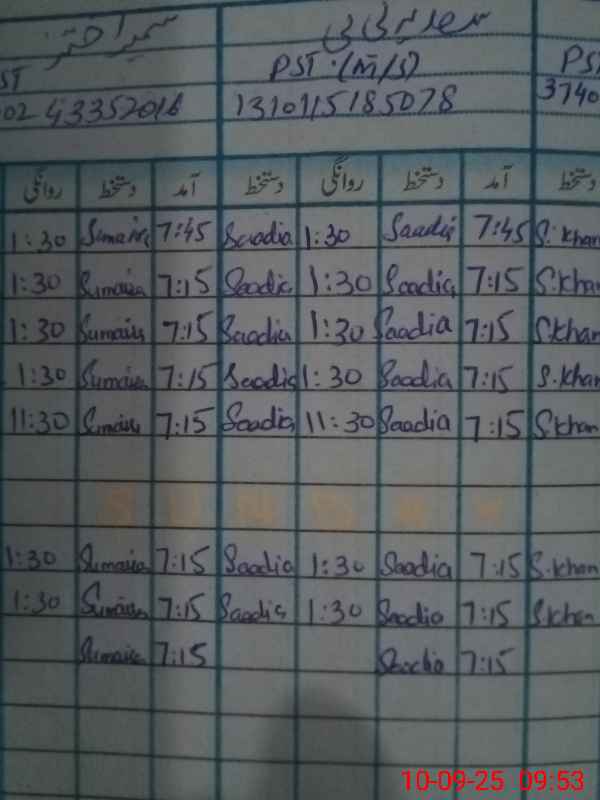 سمیرا اختر سعدیہ بی بی
ST PST (M/S) PS
02 43352016 1310115185078 3740
روانگی دستخط آمد دستخط روانگی دستخط آمد دستخط
1:30 Sumaira 7:45 Saadia 1:30 Saadia 7:45 S.khan
1:30 Sumaira 7:15 Saadia 1:30 Saadia 7:15 S.khan
1:30 Sumaira 7:15 Saadia 1:30 Saadia 7:15 S.khan
1:30 Sumaira 7:15 Saadia 1:30 Saadia 7:15 S.khan
11:30 Sumaira 7:15 Saadia 11:30 Saadia 7:15 S.khan
1:30 Sumaira 7:15 Saadia 1:30 Saadia 7:15 S.khan
1:30 Sumaira 7:15 Saadia 1:30 Saadia 7:15 S.khan
Sumaira 7:15 Saadia 7:15
10-09-25 09:53